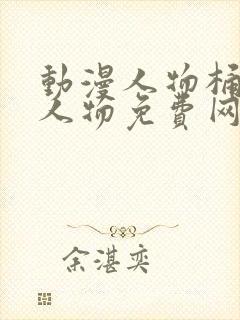 動漫人物桶
人物免費网
余湛奕